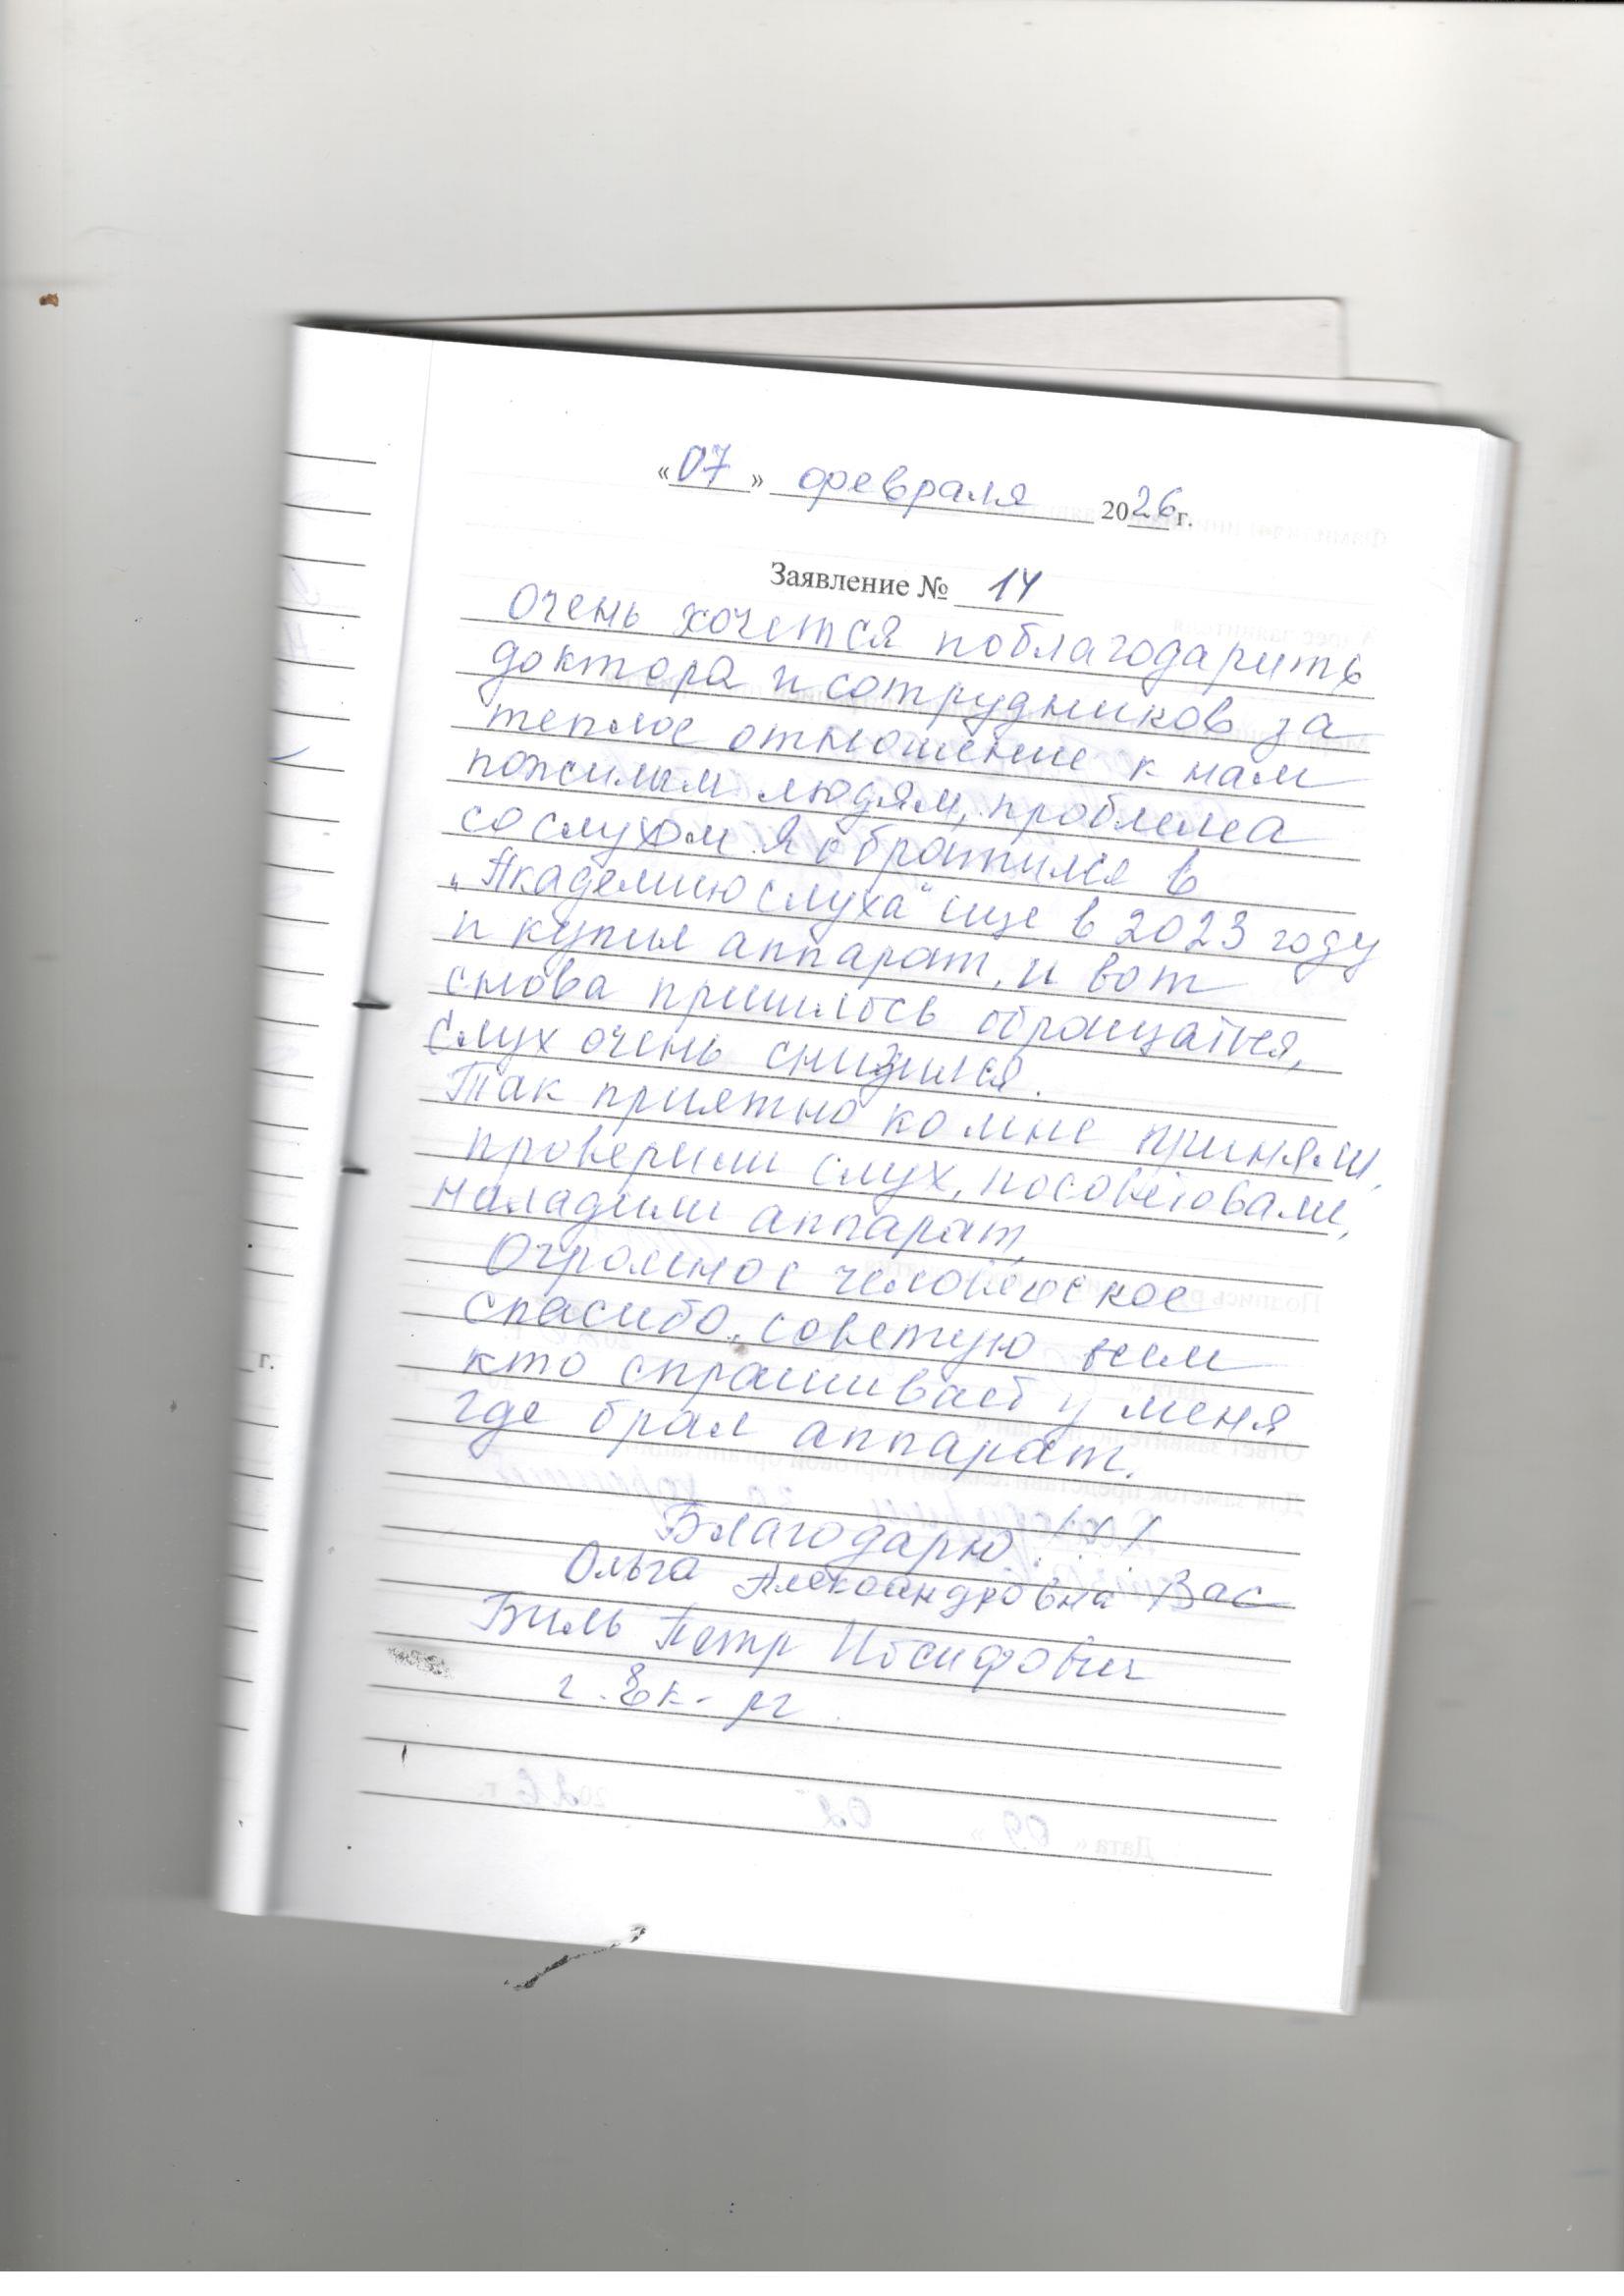 «07» февраля 2026 г.
Заявление № 14
Очень хочется поблагодарить
доктора и сотрудников за
теплое отношение к нам
пожилым людям, проблема
со слухом. Я обратился в
„Академию слуха“ еще в 2023 году
и купил аппарат, и вот
снова пришлось обращаться,
слух очень снизился.
Так приятно ко мне приняли,
проверили слух, посоветовали,
наладили аппарат.
Огромное человеческое
спасибо, советую всем
кто спрашивает у меня
где брал аппарат.
Благодарю!!!
Ольга Александровна Вас
Биль Петр Иосифович
г. Ек-рг
г.